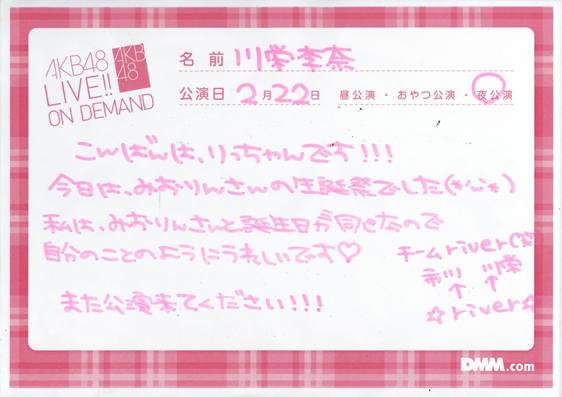 AKB48
LIVE!!
ON DEMAND
AKB
48
名前 川栄李奈
公演日 2月22日 昼公演・おやつ公演・夜公演
こんばんは、りっちゃんです!!!
今日は、みおりんさんの生誕祭でした(*'ω'*)
私は、みおりんさんと誕生日が同じなので
自分のことのようにうれしいです♡
チームriver(笑)
市川 川栄
↑ ↑
☆river☆
また公演来てください!!!
DMM.com